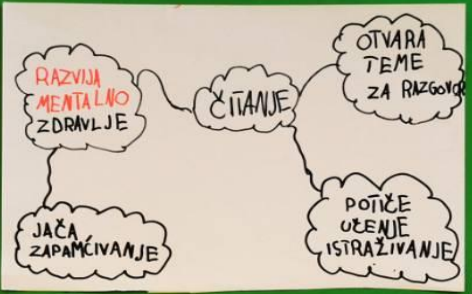 RAZVIJA
MENTALNO
ZDRAVLJE
ČITANJE
OTVARA
TEME
ZA RAZGOVOR
JAČA
ZAPAMĆIVANJE
POTIČE
UČENJE
ISTRAŽIVANJE